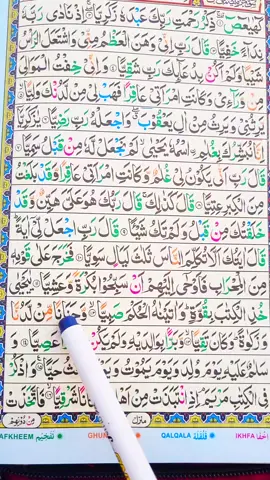 كٓهٰيٰعٓصٓ ۝ ذِكْرُ رَحْمَتِ رَبِّكَ عَبْدَهٗ زَكَرِيَّا ۝ اِذْ نَادٰى رَبَّهٗ
نِدَآءً خَفِيًّا ۝ قَالَ رَبِّ اِنِّيْ وَهَنَ الْعَظْمُ مِنِّيْ وَاشْتَعَلَ الرَّاْسُ
شَيْبًا وَّلَمْ اَكُنْۢ بِدُعَآئِكَ رَبِّ شَقِيًّا ۝ وَاِنِّيْ خِفْتُ الْمَوَالِيَ
مِنْ وَّرَآءِيْ وَكَانَتِ امْرَاَتِيْ عَاقِرًا فَهَبْ لِيْ مِنْ لَّدُنْكَ وَلِيًّا ۝
يَّرِثُنِيْ وَيَرِثُ مِنْ اٰلِ يَعْقُوْبَ وَاجْعَلْهُ رَبِّ رَضِيًّا ۝ يٰزَكَرِيَّآ
اِنَّا نُبَشِّرُكَ بِغُلٰمِ ِۨاسْمُهٗ يَحْيٰى لَمْ نَجْعَلْ لَّهٗ مِنْ قَبْلُ سَمِيًّا ۝
قَالَ رَبِّ اَنّٰى يَكُوْنُ لِيْ غُلٰمٌ وَّكَانَتِ امْرَاَتِيْ عَاقِرًا وَّقَدْ بَلَغْتُ
مِنَ الْكِبَرِ عِتِيًّا ۝ قَالَ كَذٰلِكَ قَالَ رَبُّكَ هُوَ عَلَيَّ هَيِّنٌ وَّقَدْ
خَلَقْتُكَ مِنْ قَبْلُ وَلَمْ تَكُ شَيْـًٔا ۝ قَالَ رَبِّ اجْعَلْ لِّيْٓ اٰيَةً
قَالَ اٰيَتُكَ اَلَّا تُكَلِّمَ النَّاسَ ثَلٰثَ لَيَالٍ سَوِيًّا ۝ فَخَرَجَ عَلٰى قَوْمِهٖ
مِنَ الْمِحْرَابِ فَاَوْحٰٓى اِلَيْهِمْ اَنْ سَبِّحُوْا بُكْرَةً وَّعَشِيًّا ۝ يٰيَحْيٰى
خُذِ الْكِتٰبَ بِقُوَّةٍ وَاٰتَيْنٰهُ الْحُكْمَ صَبِيًّا ۝ وَّحَنَانًا مِّنْ لَّدُنَّا
وَزَكٰوةً وَكَانَ تَقِيًّا ۝ وَّبَرًّۢا بِوَالِدَيْهِ وَلَمْ يَكُنْ عَصِيًّا ۝
وَسَلٰمٌ عَلَيْهِ يَوْمَ وُلِدَ وَيَوْمَ يَمُوْتُ وَيَوْمَ يُبْعَثُ حَيًّا ۝ وَاذْكُرْ
فِي الْكِتٰبِ مَرْيَمَ اِذِ انْتَبَذَتْ مِنْ اَهْلِهَا مَكَانًا شَرْقِيًّا ۝ فَاتَّخَذَتْ
منزل ٤ مِنْ دُوْنِهِمْ
AFKHEEM تفخيم GHU QALQALA قلقلة IKHFA اخفا